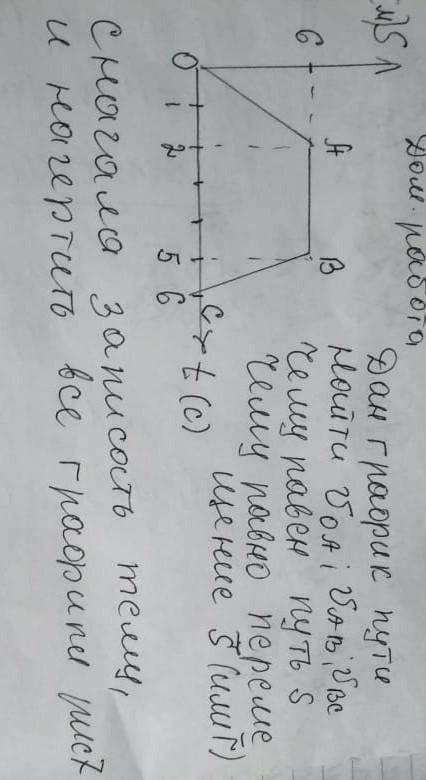 Дом. работа
S(м)
6
A
B
0
1
2
5
6
C
t (с)
Дан график пути
найти υOA; υAB; υBC
чему равен путь S
чему равно переме
щение S⃗ (или r⃗)
Сначала записать тему,
и начертить все графики рис7